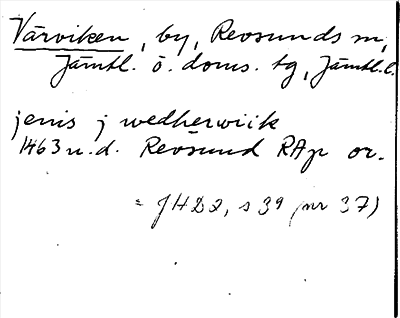 Värviken, by, Revsunds sn,
Jämtl. ö. doms. tg, Jämtl. l.
jenis j wedherwiik
1463 u.d. Revsund RAp or.
= JHD2, s 39 (nr 37)